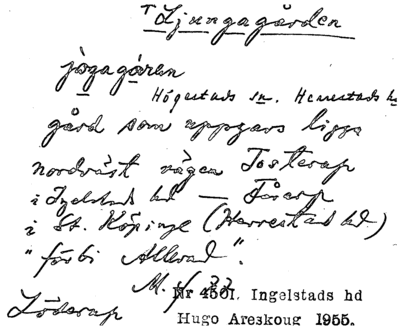 T Ljungagården
jɔ̀gagáren
Högestads sn. Herrestads h
gård som uppgavs ligga
nordväst vägen Tosterup
i Ingelstads hd — Fårarp
i St. Köpinge (Herrestad hd.)
"förbi Allevad".
M. f. 33
Nr 4501. Ingelstads hd
Löderup
Hugo Areskoug 1955.